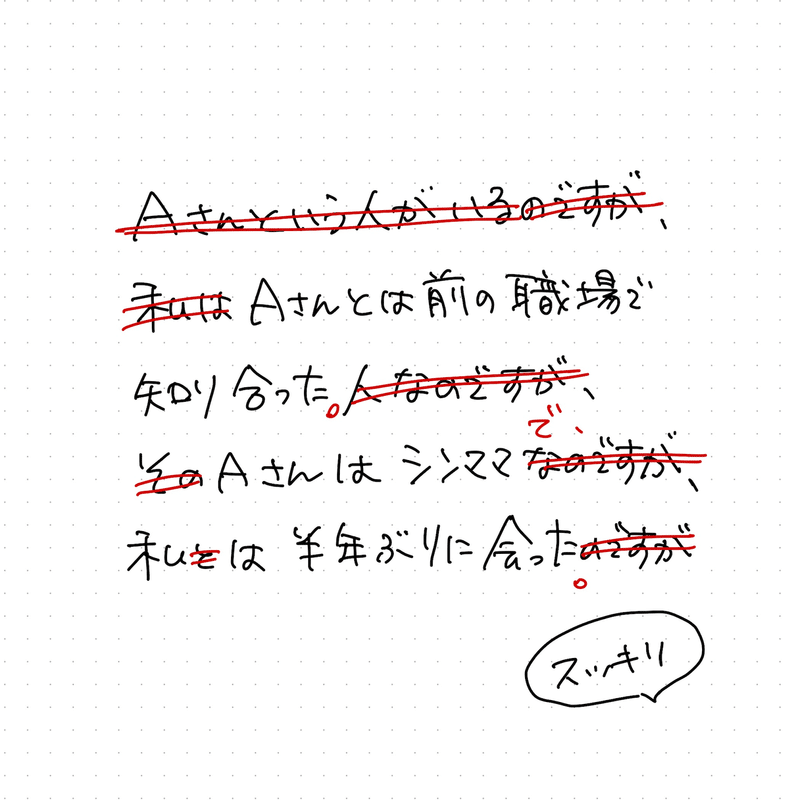 Aさんという人がいるのですが、
私は Aさんとは前の職場で
知り合った。人なのですが、
で、
そのAさんは シンママなのですが、
私とは 半年ぶりに会ったのですが
。
スッキリ